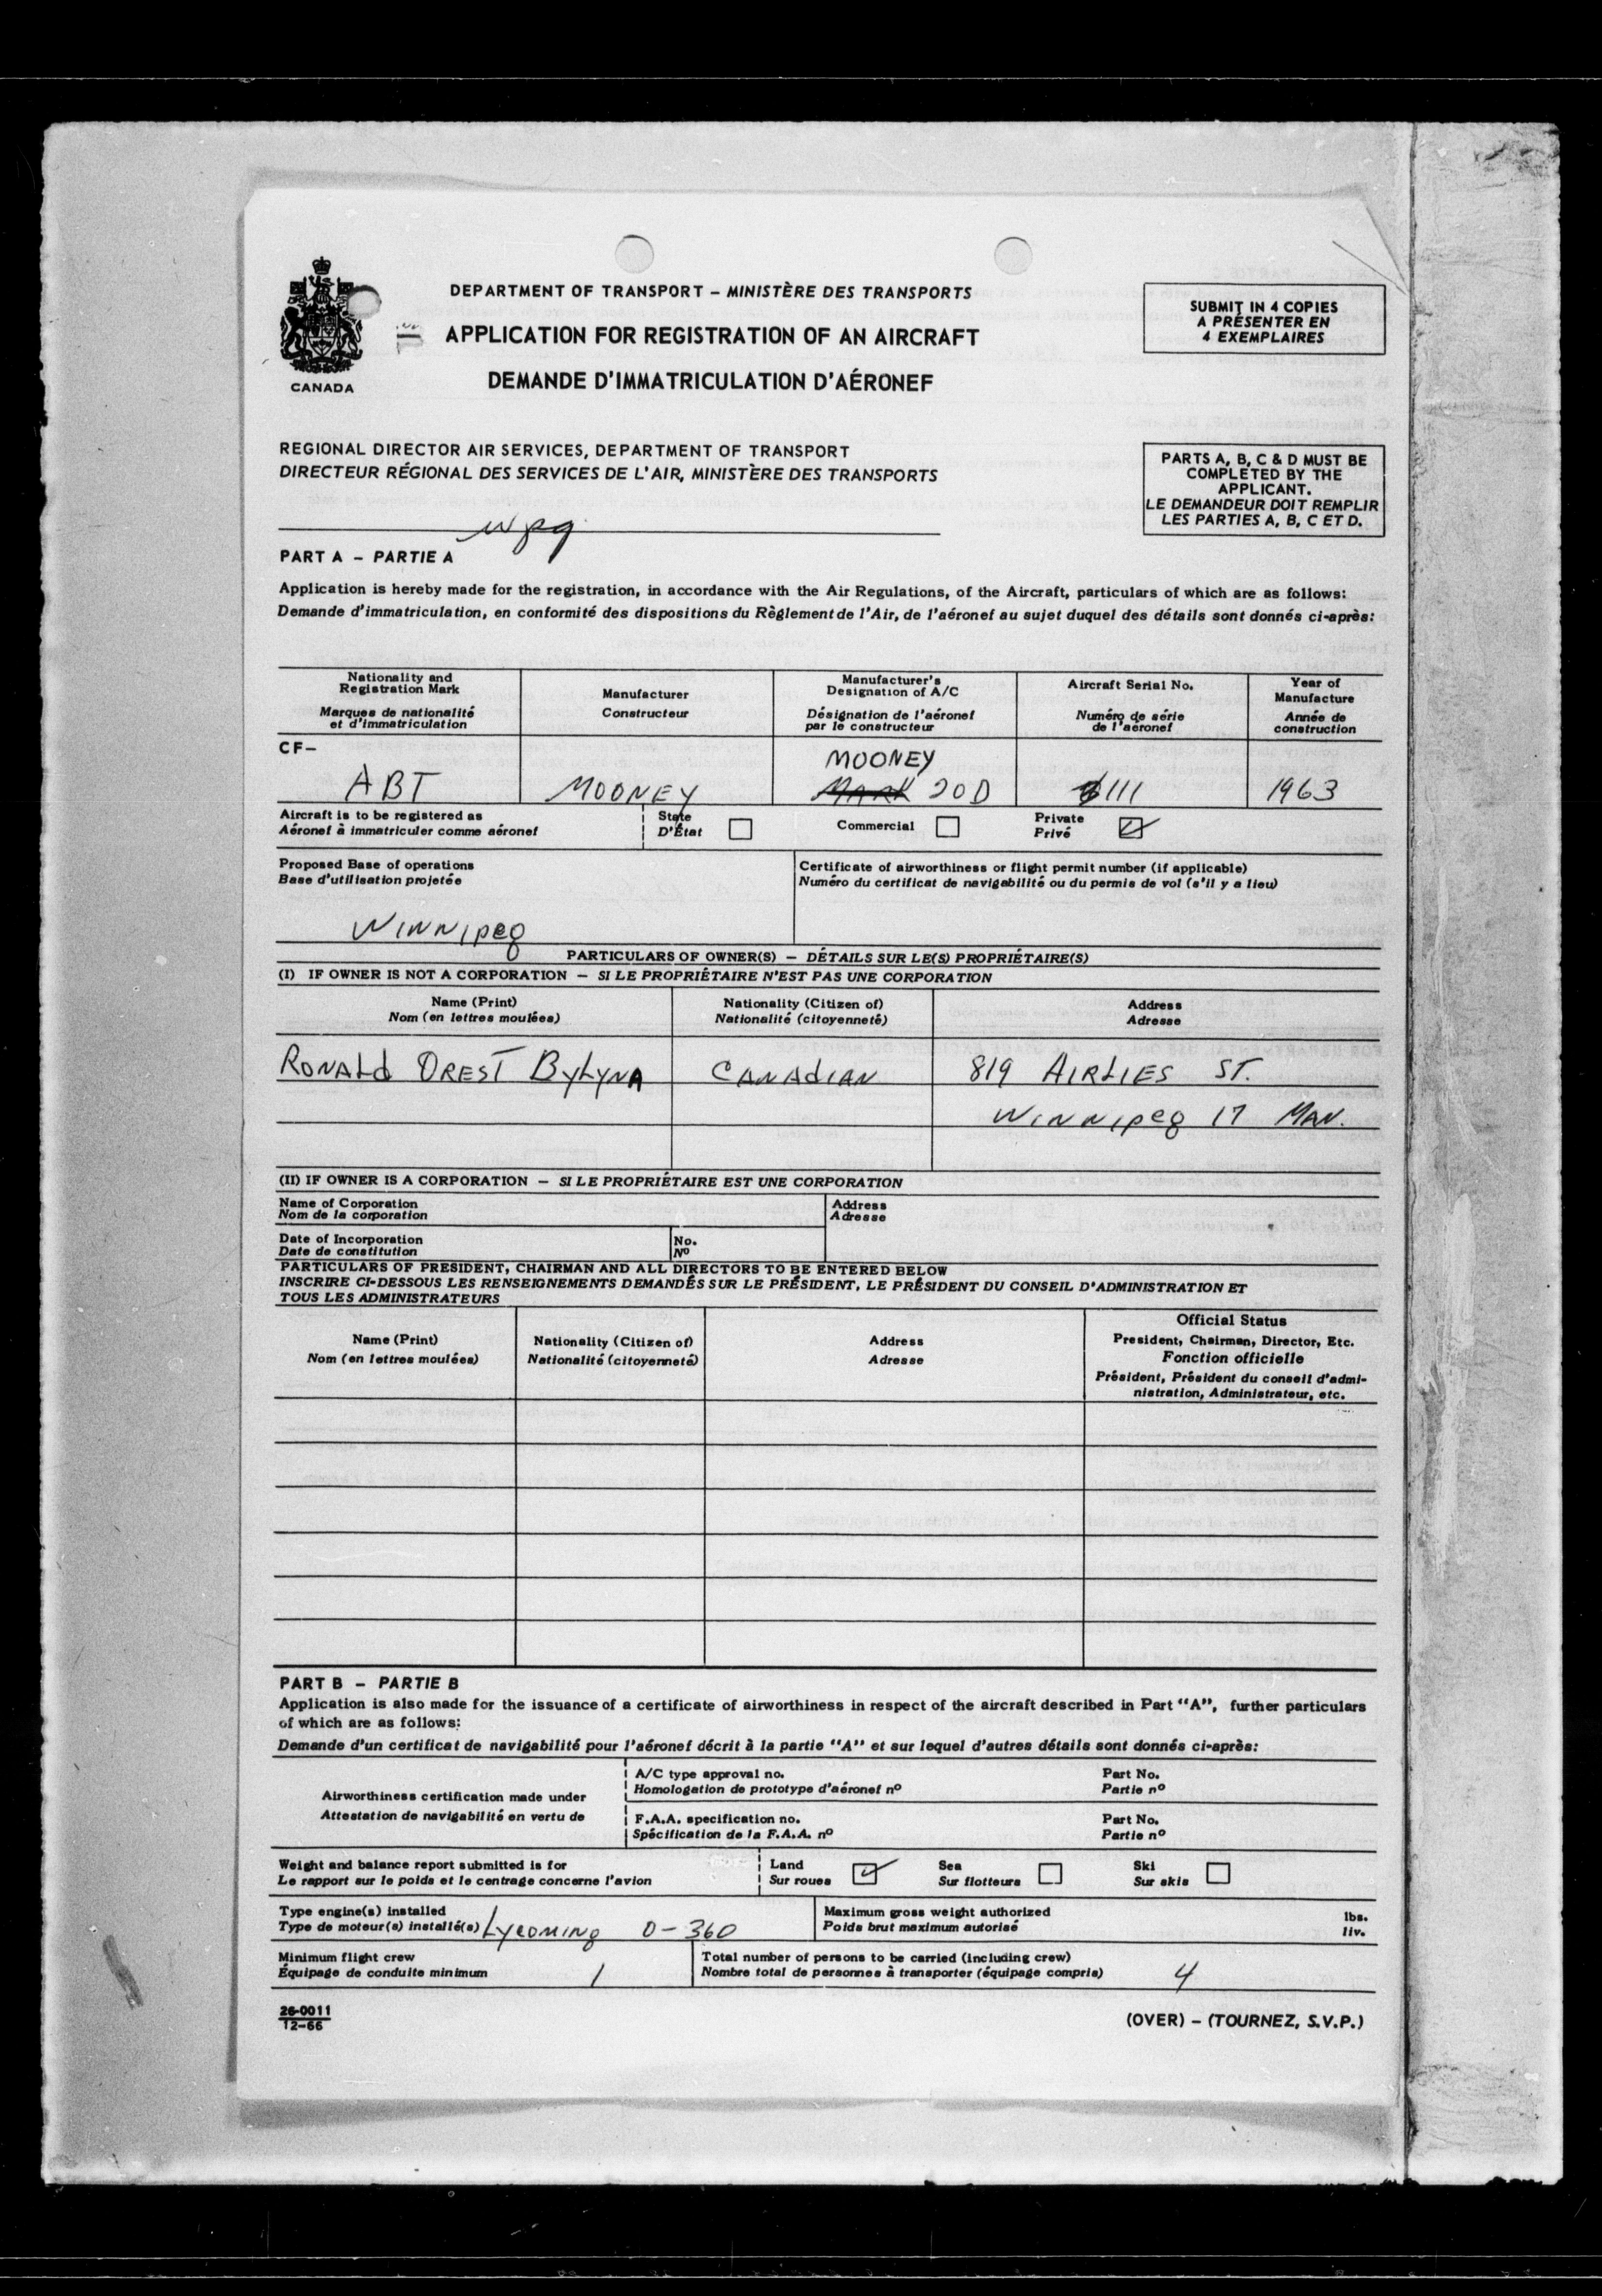 CANADA
DEPARTMENT OF TRANSPORT – MINISTÈRE DES TRANSPORTS
APPLICATION FOR REGISTRATION OF AN AIRCRAFT
DEMANDE D'IMMATRICULATION D'AÉRONEF
SUBMIT IN 4 COPIES
A PRÉSENTER EN
4 EXEMPLAIRES
REGIONAL DIRECTOR AIR SERVICES, DEPARTMENT OF TRANSPORT
DIRECTEUR RÉGIONAL DES SERVICES DE L'AIR, MINISTÈRE DES TRANSPORTS
wpg
PARTS A, B, C & D MUST BE
COMPLETED BY THE
APPLICANT.
LE DEMANDEUR DOIT REMPLIR
LES PARTIES A, B, C ET D.
PART A – PARTIE A
Application is hereby made for the registration, in accordance with the Air Regulations, of the Aircraft, particulars of which are as follows:
Demande d'immatriculation, en conformité des dispositions du Règlement de l'Air, de l'aéronef au sujet duquel des détails sont donnés ci-après:
Nationality and
Registration Mark
Marques de nationalité
et d'immatriculation
Manufacturer
Constructeur
Manufacturer's
Designation of A/C
Désignation de l'aéronef
par le constructeur
Aircraft Serial No.
Numéro de série
de l'aéronef
Year of
Manufacture
Année de
construction
CF–
ABT
MOONEY
MOONEY
MARK 20D
111
1963
Aircraft is to be registered as
Aéronef à immatriculer comme aéronef
State
D'État
Commercial
Private
Privé
Proposed Base of operations
Base d'utilisation projetée
WINNIPEG
Certificate of airworthiness or flight permit number (if applicable)
Numéro du certificat de navigabilité ou du permis de vol (s'il y a lieu)
PARTICULARS OF OWNER(S) – DÉTAILS SUR LE(S) PROPRIÉTAIRE(S)
(I) IF OWNER IS NOT A CORPORATION – SI LE PROPRIÉTAIRE N'EST PAS UNE CORPORATION
Name (Print)
Nom (en lettres moulées)
Nationality (Citizen of)
Nationalité (citoyenneté)
Address
Adresse
RONALD OREST BYLYNA
CANADIAN
819 AIRLIES ST.
WINNIPEG 17 MAN.
(II) IF OWNER IS A CORPORATION – SI LE PROPRIÉTAIRE EST UNE CORPORATION
Name of Corporation
Nom de la corporation
Address
Adresse
Date of Incorporation
Date de constitution
No.
Nº
PARTICULARS OF PRESIDENT, CHAIRMAN AND ALL DIRECTORS TO BE ENTERED BELOW
INSCRIRE CI-DESSOUS LES RENSEIGNEMENTS DEMANDÉS SUR LE PRÉSIDENT, LE PRÉSIDENT DU CONSEIL D'ADMINISTRATION ET
TOUS LES ADMINISTRATEURS
Name (Print)
Nom (en lettres moulées)
Nationality (Citizen of)
Nationalité (citoyenneté)
Address
Adresse
Official Status
President, Chairman, Director, Etc.
Fonction officielle
Président, Président du conseil d'admi-
nistration, Administrateur, etc.
PART B – PARTIE B
Application is also made for the issuance of a certificate of airworthiness in respect of the aircraft described in Part "A", further particulars
of which are as follows:
Demande d'un certificat de navigabilité pour l'aéronef décrit à la partie "A" et sur lequel d'autres détails sont donnés ci-après:
Airworthiness certification made under
Attestation de navigabilité en vertu de
A/C type approval no.
Homologation de prototype d'aéronef nº
Part No.
Partie nº
F.A.A. specification no.
Spécification de la F.A.A. nº
Part No.
Partie nº
Weight and balance report submitted is for
Le rapport sur le poids et le centrage concerne l'avion
Land
Sur roues
Sea
Sur flotteurs
Ski
Sur skis
Type engine(s) installed
Type de moteur(s) installé(s) LYCOMING O-360
Maximum gross weight authorized
Poids brut maximum autorisé
lbs.
liv.
Minimum flight crew
Équipage de conduite minimum 1
Total number of persons to be carried (including crew)
Nombre total de personnes à transporter (équipage compris) 4
26-0011
12-66
(OVER) – (TOURNEZ, S.V.P.)